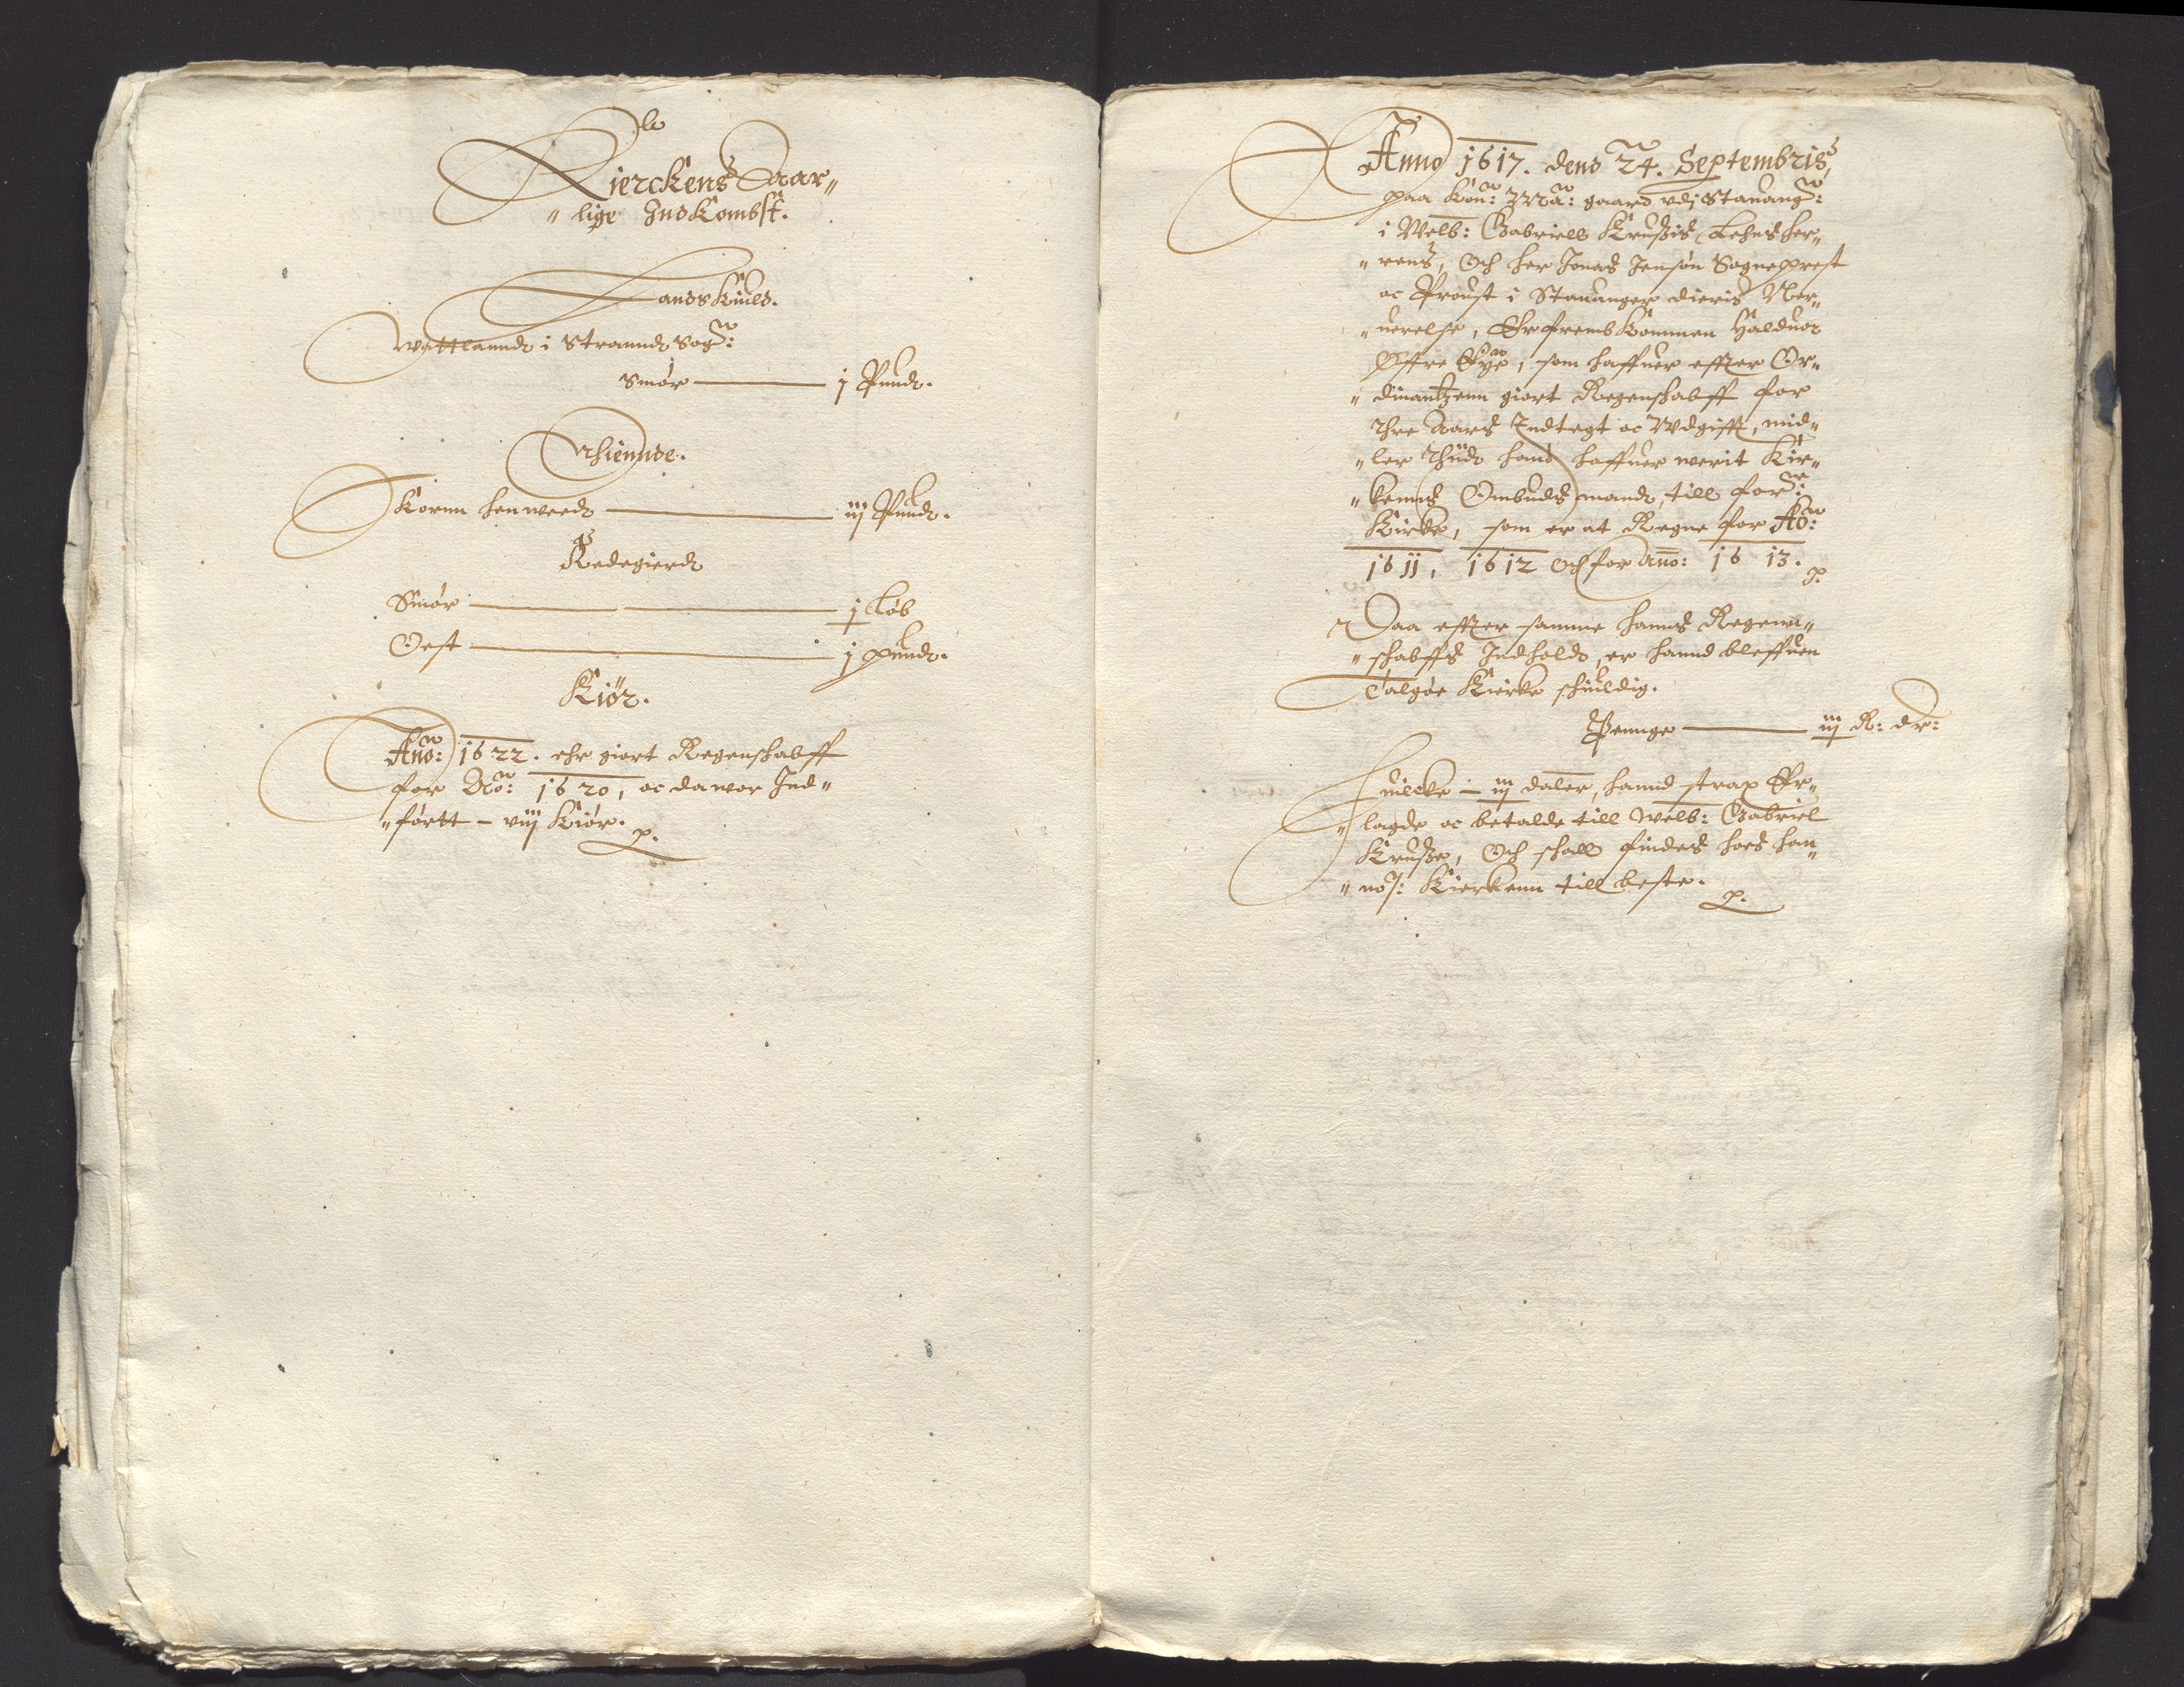 Kierckens Aar„
„ lige Indkombst.
Landskiuld.
Wattlannd i Strannd Sog:
Smór — j Pund.
Thiennde.
Kornn hen weed — iij Pund.
Redegierd
Smór — j Lób
Oest — j pund.
Kiór.
Ano: 1622. ehr giort Regenschabff
for Ao: 1620, oc da wor Ind„
„fórtt – viij Kiór. p.
Anno 1617. dend 24. Septembris,
paa Kon: Ma: gaard vdj Stauang:
i Welb: Gabriells Krußis Lehns her„
„ rens, Och her Jonas Jensøn Sogneprest
oc Proust i Stauanger dieris Ner„
„ uerelse, Er frembkommen Halduor
Øffre Eye, som haffuer effter Or„
„ dinantzenn giort Regenschabff for
Thre Aars Indtegt oc Wdgifft, mid„
„ ler Thiid hand haffuer werit Kir„
„ kenns Ombudsmand, till for:
Kircke, som er at Regne for Ao:
1611, 1612 och for Ano: 1613. p.
Daa effter samme hanns Regenn„
„ schabffs Indhold, er hannd bleffuen
Talgóe Kircke schiuldig.
Pennge — iij R: dr:
Huilcke – iij daler, hannd strax Er„
„ lagde oc betalde till Welb: Gabriel
Kruße, Och schall findes hoes han„
„ nos: Kierkenn till beste. p.